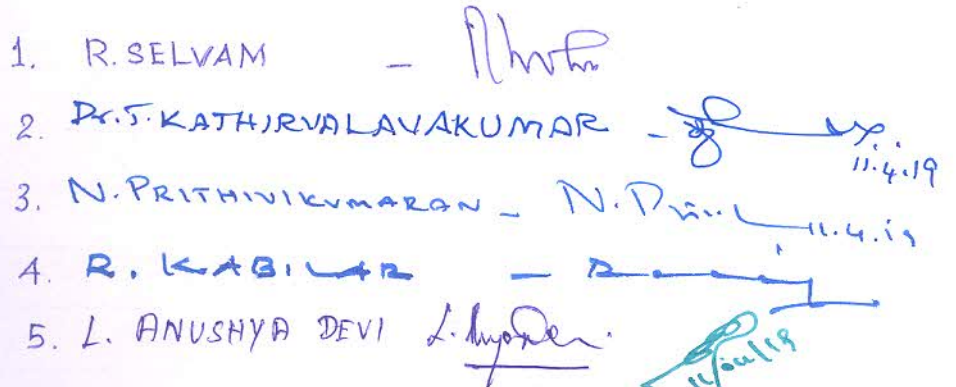 1. R. SELVAM -
2. Dr. T. KATHIRVALAVAKUMAR -
11.4.19
3. N. PRITHIVIKUMARAN - N. 11.4.19
4. R. KABILAR -
5. L. ANUSHYA DEVI L.
11/04/19